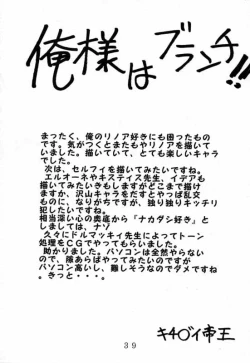 俺様はブランチ!!
まったく、俺のリノア好きにも困ったもの
です。気がつくとまたもやリノアを描いて
いました。描いていて、とても楽しいキャラ
でした。
次は、セルフィを描いてみたいですね。
エルオーネやキスティス先生、イデアも
描いてみたいきもしますがどこまで描け
ますか、沢山キャラを出すとやっぱ乱交
ものに、なりがちですが、独り独りキッチリ
犯したいですね。
相当深い心の奥底から「ナカダシ好き」と
しましては、ナゾ
久々にドルマッキィ先生によってトーン
処理をCGでやってもらいました。
助かりました。パソコンは全然やらない
ので、隙あらばやってみたいのですが
パソコン高いし、難しそうなのでダメですね
。きっと・・・。
39
帝王